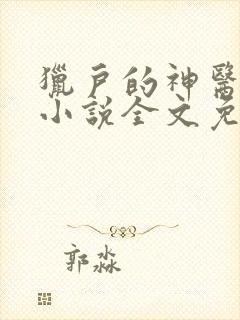 獵戶的神醫
小說全文免
郭淼